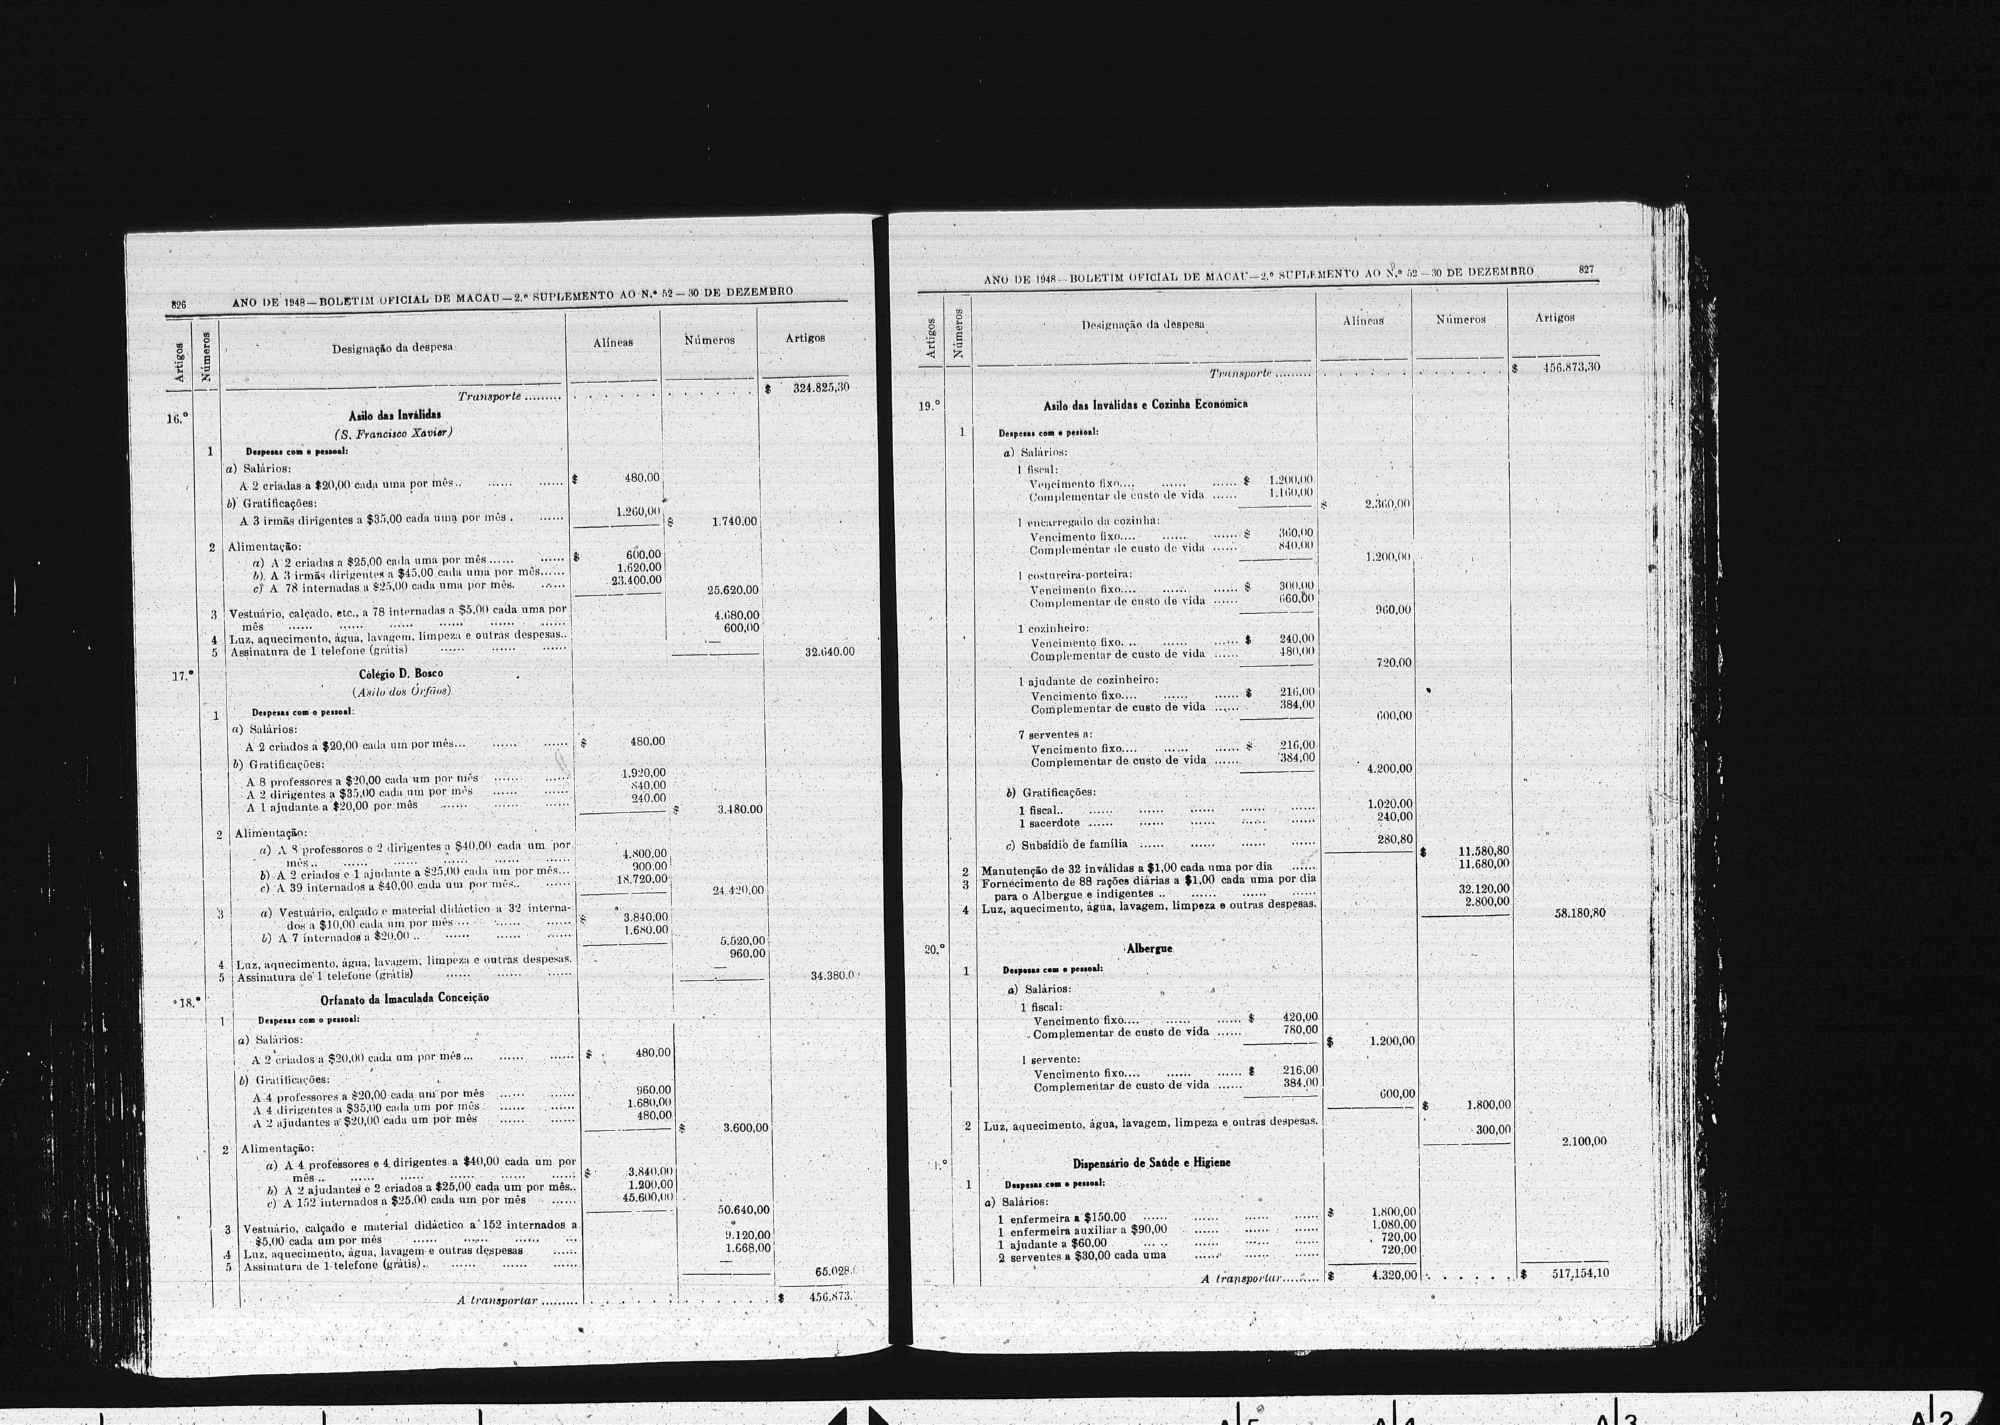 826 ANO DE 1948—BOLETIM OFICIAL DE MACAU—2.º SUPLEMENTO AO N.º 52—30 DE DEZEMBRO
Artigos Números Designação da despesa Alíneas Números Artigos
Transporte ......... . . . . . . . . . . $ 324.825,30
16.º Asilo das Inválidas
(S. Francisco Xavier)
1 Despesas com o pessoal:
a) Salários:
A 2 criadas a $20,00 cada uma por mês.. ...... ...... $ 480,00
b) Gratificações:
A 3 irmãs dirigentes a $35,00 cada uma por mês . ...... 1.260,00 $ 1.740,00
2 Alimentação:
a) A 2 criadas a $25,00 cada uma por mês...... ...... $ 600,00
b) A 3 irmãs dirigentes a $45,00 cada uma por mês...... 1.620,00
c) A 78 internadas a $25,00 cada uma por mês. ...... 23.400,00 25.620,00
3 Vestuário, calçado, etc., a 78 internadas a $5,00 cada uma por
mês ...... ...... ...... ...... ...... ...... 4.680,00
4 Luz, aquecimento, água, lavagem, limpeza e outras despesas.. 600,00
5 Assinatura de 1 telefone (grátis) ...... ...... ...... — 32.640,00
17.º Colégio D. Bosco
(Asilo dos Órfãos)
1 Despesas com o pessoal:
a) Salários:
A 2 criados a $20,00 cada um por mês... ...... ...... $ 480,00
b) Gratificações:
A 8 professores a $20,00 cada um por mês ...... ...... 1.920,00
A 2 dirigentes a $35,00 cada um por mês ...... ...... 840,00
A 1 ajudante a $20,00 por mês ...... ...... ...... 240,00 $ 3.480,00
2 Alimentação:
a) A 8 professores e 2 dirigentes a $40,00 cada um por
mês.. ...... ...... ...... ...... ...... 4.800,00
b) A 2 criados e 1 ajudante a $25,00 cada um por mês... 900,00
c) A 39 internados a $40,00 cada um por mês.. ...... 18.720,00 24.420,00
3 a) Vestuário, calçado e material didáctico a 32 interna-
dos a $10,00 cada um por mês.... ...... ...... $ 3.840,00
b) A 7 internados a $20,00 .. ...... ...... ...... 1.680,00 5.520,00
4 Luz, aquecimento, água, lavagem, limpeza e outras despesas. 960,00
5 Assinatura de 1 telefone (grátis) ...... ...... ...... — 34.380,0
18.º Orfanato da Imaculada Conceição
1 Despesas com o pessoal:
a) Salários:
A 2 criados a $20,00 cada um por mês... ...... ...... $ 480,00
b) Gratificações:
A 4 professores a $20,00 cada um por mês ...... ...... 960,00
A 4 dirigentes a $35,00 cada um por mês ...... ...... 1.680,00
A 2 ajudantes a $20,00 cada um por mês ...... ...... 480,00 $ 3.600,00
2 Alimentação:
a) A 4 professores e 4 dirigentes a $40,00 cada um por
mês .. ...... ...... ...... ...... ...... $ 3.840,00
b) A 2 ajudantes e 2 criados a $25,00 cada um por mês.. 1.200,00
c) A 152 internados a $25,00 cada um por mês ...... 45.600,00 50.640,00
3 Vestuário, calçado e material didáctico a 152 internados a
$5,00 cada um por mês ...... ...... ...... ... 9.120,00
4 Luz, aquecimento, água, lavagem e outras despesas ...... 1.668,00
5 Assinatura de 1 telefone (grátis).. ...... ...... ...... — 65.028,
A transportar ......... . . . . . . . . . . $ 456.873,
ANO DE 1948—BOLETIM OFICIAL DE MACAU—2.º SUPLEMENTO AO N.º 52—30 DE DEZEMBRO 827
Artigos Números Designação da despesa Alíneas Números Artigos
Transporte ......... . . . . . . . . . . $ 456.873,30
19.º Asilo das Inválidas e Cozinha Económica
1 Despesas com o pessoal:
a) Salários:
1 fiscal:
Vencimento fixo.... ...... ...... $ 1.200,00
Complementar de custo de vida ...... 1.160,00 $ 2.360,00
1 encarregado da cozinha:
Vencimento fixo.... ...... ...... $ 360,00
Complementar de custo de vida ...... 840,00 1.200,00
1 costureira-porteira:
Vencimento fixo.... ...... ...... $ 300,00
Complementar de custo de vida ...... 660,00 960,00
1 cozinheiro:
Vencimento fixo. .. ...... ...... $ 240,00
Complementar de custo de vida ...... 480,00 720,00
1 ajudante de cozinheiro:
Vencimento fixo.... ...... ...... $ 216,00
Complementar de custo de vida ...... 384,00 600,00
7 serventes a:
Vencimento fixo.... ...... ...... $ 216,00
Complementar de custo de vida ...... 384,00 4.200,00
b) Gratificações:
1 fiscal.. ...... ...... ...... ...... ...... 1.020,00
1 sacerdote ...... ...... ...... ...... ...... 240,00
c) Subsídio de família ...... ...... ...... ...... 280,80 $ 11.580,80
2 Manutenção de 32 inválidas a $1,00 cada uma por dia ...... 11.680,00
3 Fornecimento de 88 rações diárias a $1,00 cada uma por dia
para o Albergue e indigentes .. ...... ...... ...... 32.120,00
4 Luz, aquecimento, água, lavagem, limpeza e outras despesas. 2.800,00 58.180,80
20.º Albergue
1 Despesas com o pessoal:
a) Salários:
1 fiscal:
Vencimento fixo.... ...... ...... $ 420,00
Complementar de custo de vida ...... 780,00 $ 1.200,00
1 servente:
Vencimento fixo.... ...... ...... $ 216,00
Complementar de custo de vida ...... 384,00 600,00 $ 1.800,00
2 Luz, aquecimento, água, lavagem, limpeza e outras despesas. 300,00 2.100,00
1.º Dispensário de Saúde e Higiene
1 Despesas com o pessoal:
a) Salários:
1 enfermeira a $150,00 ...... ...... ...... ...... $ 1.800,00
1 enfermeira auxiliar a $90,00 ...... ...... ...... 1.080,00
1 ajudante a $60,00 ...... ...... ...... ...... 720,00
2 serventes a $30,00 cada uma ...... ...... ...... 720,00
A transportar......... $ 4.320,00 . . . . . . $ 517.154,10
A5 A4 A3 A2